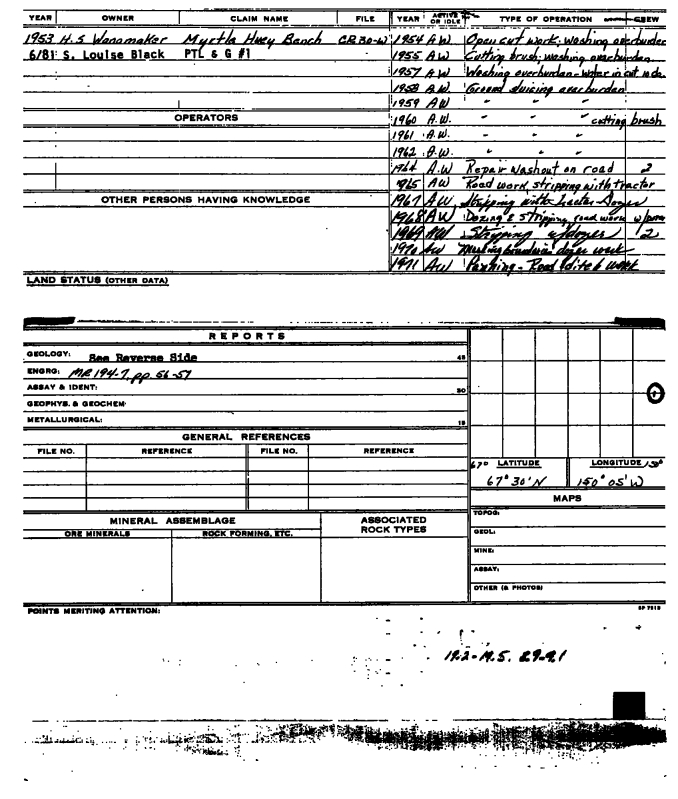 YEAR OWNER CLAIM NAME FILE YEAR ACTIVE OR IDLE TYPE OF OPERATION CREW
1953 H.S. Wanamaker Myrtle Huey Bench CR 30-W 1954 A W Open cut work; washing overburden
6/81 S. Louise Black PTL & G #1 1955 A W Cutting brush; washing overburden
1957 A W Washing overburden - water in cut
1958 A.W. Ground sluicing overburden
1959 A W " " "
OPERATORS 1960 A.W. " " " cutting brush
1961 A.W. " " "
1962 A.W. " " "
1964 A.W Repair washout on road 2
1965 A W Road work, stripping with tractor
OTHER PERSONS HAVING KNOWLEDGE 1967 A W Stripping with tractor dozer
1968 A W Dozing & stripping, road work
1969 A W Stripping w/dozer 2
1970 A W dozer work
1971 A W - Road ditch work
LAND STATUS (OTHER DATA)
REPORTS
GEOLOGY: See Reverse Side 45
ENGRG: MR 194-7, pp. 56-57
ASSAY & IDENT: 30
GEOPHYS. & GEOCHEM:
METALLURGICAL: 15
GENERAL REFERENCES
FILE NO. REFERENCE FILE NO. REFERENCE
67° LATITUDE LONGITUDE 150°
67° 30' N 150° 05' W
MAPS
MINERAL ASSEMBLAGE ASSOCIATED ROCK TYPES TOPOG:
ORE MINERALS ROCK FORMING, ETC. GEOL:
MINE:
ASSAY:
OTHER (& PHOTOS)
POINTS MERITING ATTENTION:
19.2-19.5. 29-9.1